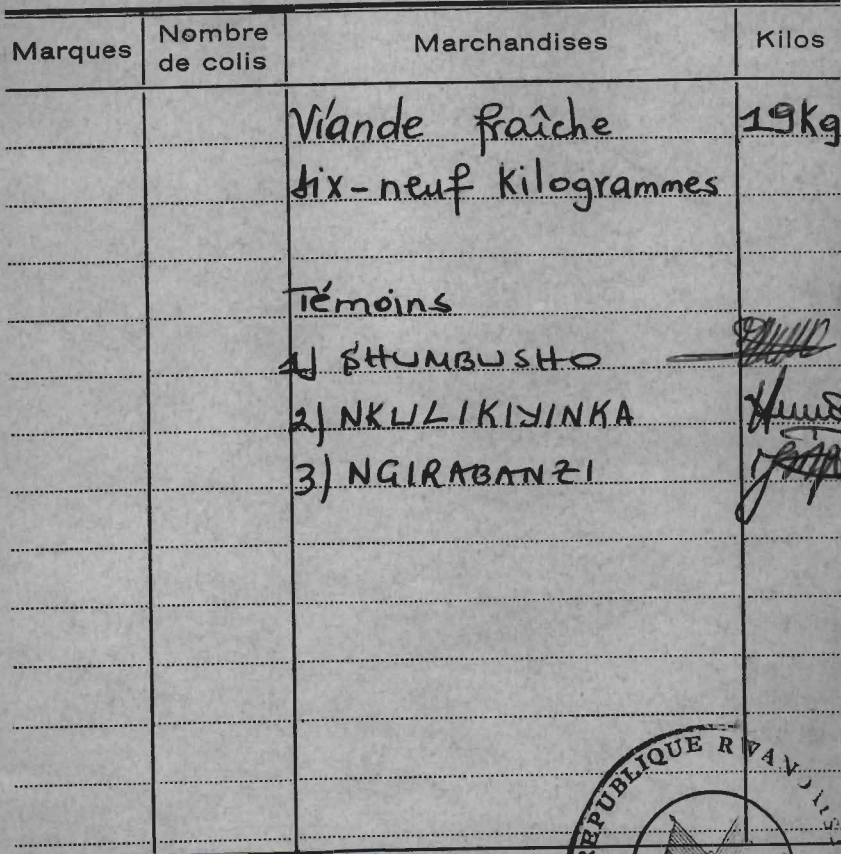 Marques Nombre de colis Marchandises Kilos
Viande fraîche 19Kg
dix-neuf Kilogrammes
Témoins
1) SHUMBUSHO
2) NKULIKIYINKA
3) NGIRABANZI
REPUBLIQUE RWANDAISE